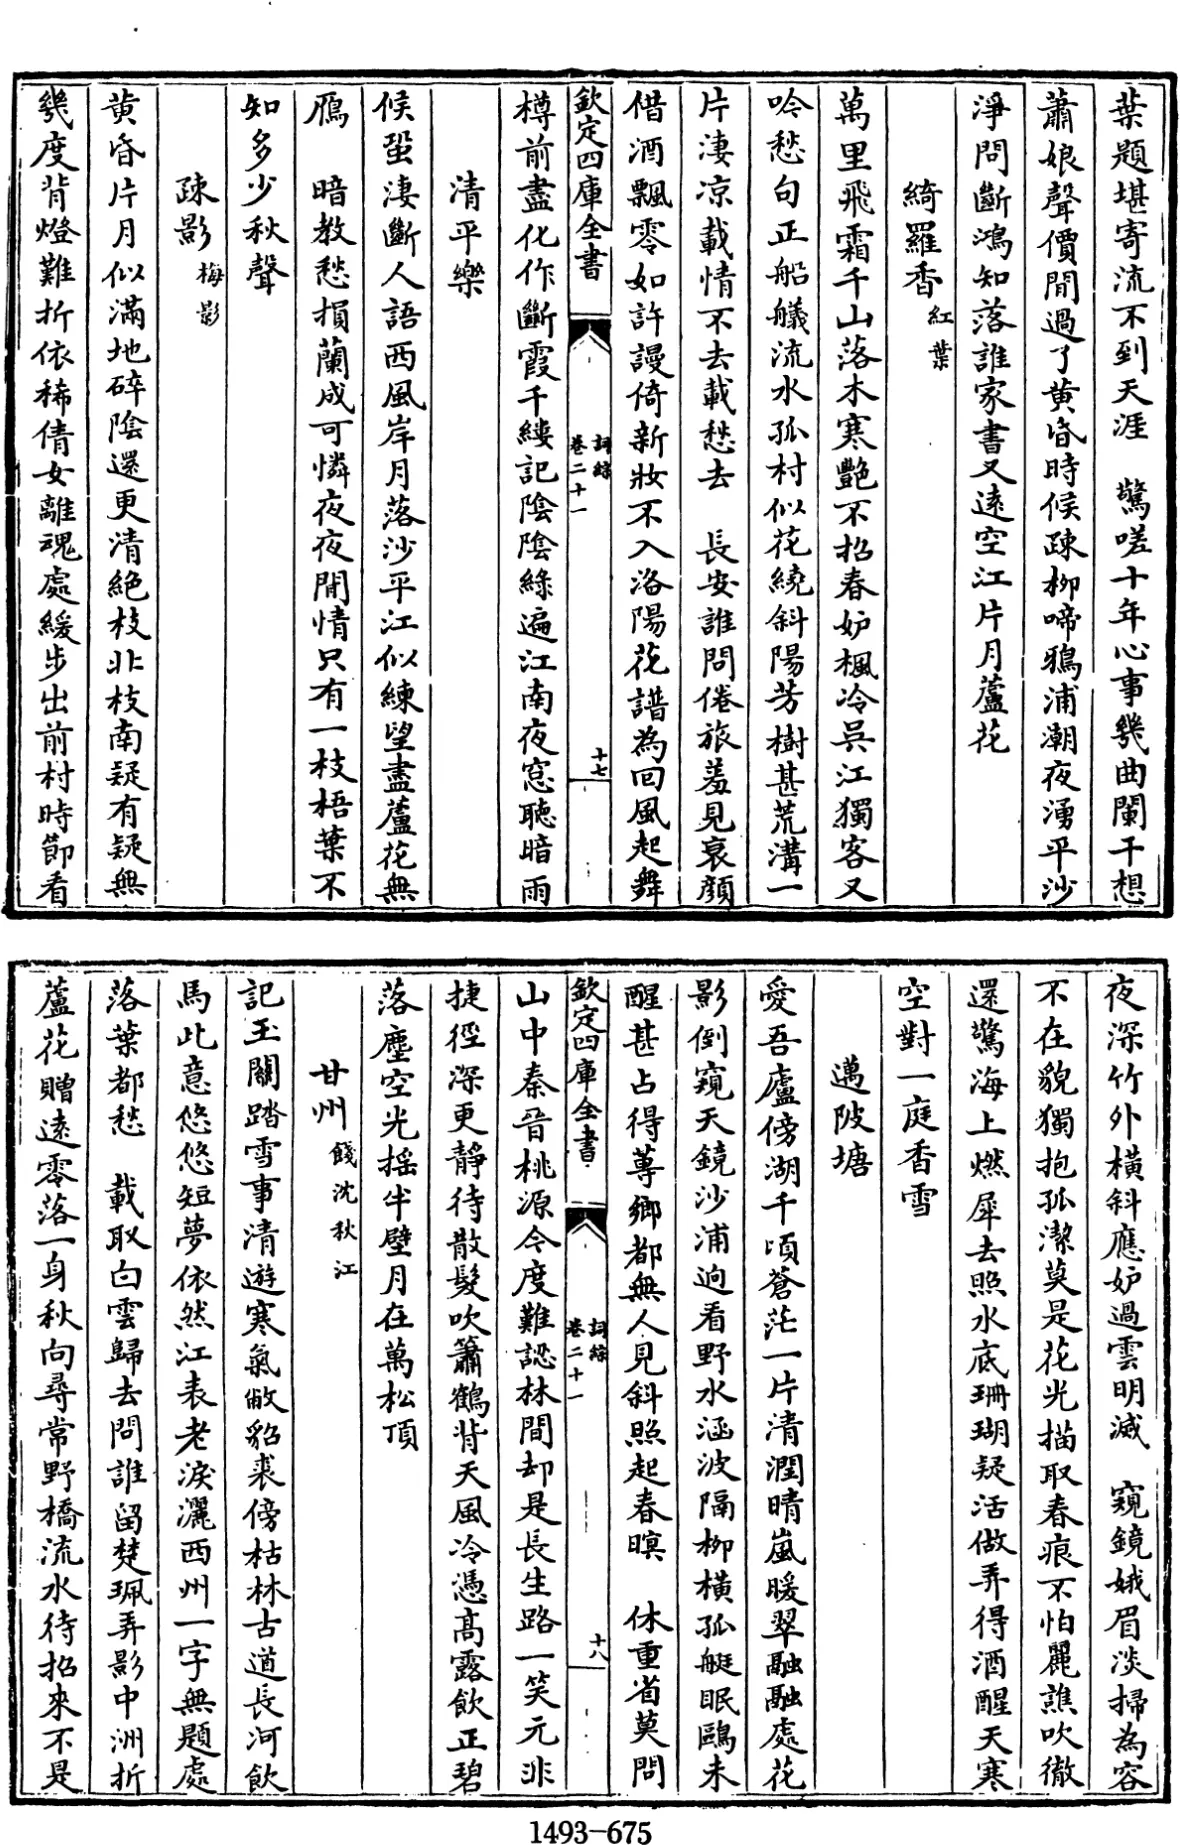 葉題堪寄流不到天涯　驚嗟十年心事幾曲闌干想
蕭娘聲價閒過了黄昏時候疎柳啼鴉浦潮夜湧平沙
淨問斷鴻知落誰家書又遠空江片月蘆花
綺羅香紅葉
萬里飛霜千山落木寒艷不招春妒楓冷吳江獨客又
吟愁句正船艤流水孤村似花繞斜陽芳樹甚荒溝一
片淒凉載情不去載愁去　長安誰問倦旅羞見衰顔
借酒飄零如許謾倚新妝不入洛陽花譜為回風起舞
欽定四庫全書
詞綜
卷二十一
十七
樽前盡化作斷霞千縷記陰陰綠遍江南夜窓聽暗雨
清平樂
候蛩淒斷人語西風岸月落沙平江似練望盡蘆花無
鴈　暗教愁損蘭成可憐夜夜閒情只有一枝梧葉不
知多少秋聲
疎影梅影
黄昏片月似滿地碎陰還更清絶枝北枝南疑有疑無
幾度背燈難折依稀倩女離魂處緩步出前村時節看
夜深竹外橫斜應妒過雲明滅　窺鏡娥眉淡掃為容
不在貌獨抱孤潔莫是花光描取春痕不怕麗譙吹徹
還驚海上燃犀去照水底珊瑚疑活做弄得酒醒天寒
空對一庭香雪
邁陂塘
愛吾廬傍湖千頃蒼茫一片清潤晴嵐暖翠融融處花
影倒窺天鏡沙浦逈看野水涵波隔柳橫孤艇眠鷗未
醒甚占得蓴鄉都無人見斜照起春暝　休重省莫問
欽定四庫全書
詞綜
卷二十一
十八
山中秦晉桃源今度難認林間却是長生路一笑元非
捷徑深更靜待散髮吹簫鶴背天風冷憑髙露飲正碧
落塵空光摇半壁月在萬松頂
甘州餞沈秋江
記玉關踏雪事清遊寒氣敝貂裘傍枯林古道長河飲
馬此意悠悠短夢依然江表老淚灑西州一字無題處
落葉都愁　載取白雲歸去問誰留楚珮弄影中洲折
蘆花贈遠零落一身秋向尋常野橋流水待招來不是
1493-675